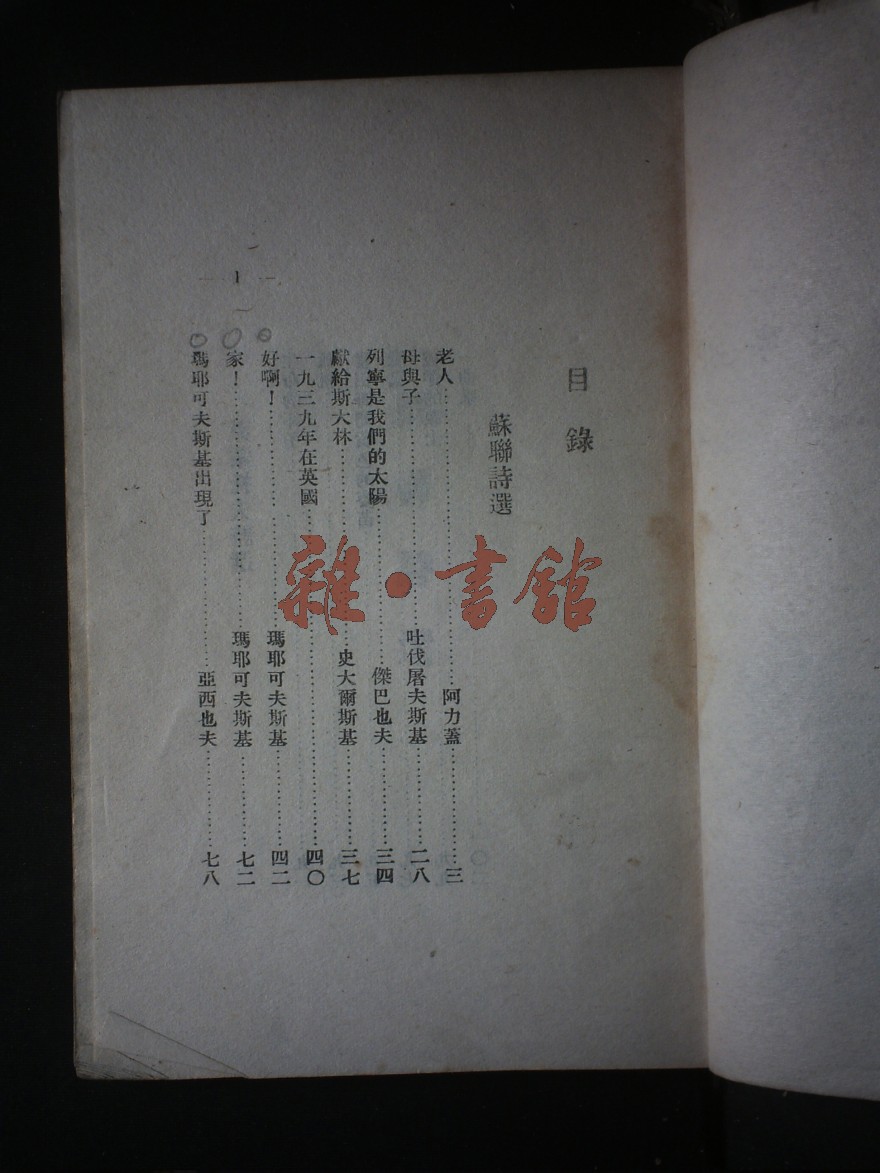 目錄
蘇聯詩選
老人……阿力蓋……三
母與子……吐伐屠夫斯基……二八
列寧是我們的太陽……傑巴也夫……三四
獻給斯大林……史大爾斯基……三七
一九三九年在英國……四〇
好啊！……瑪耶可夫斯基……四二
家！……瑪耶可夫斯基……七二
瑪耶可夫斯基出現了……亞西也夫……七八
— 1 —
雜·書館